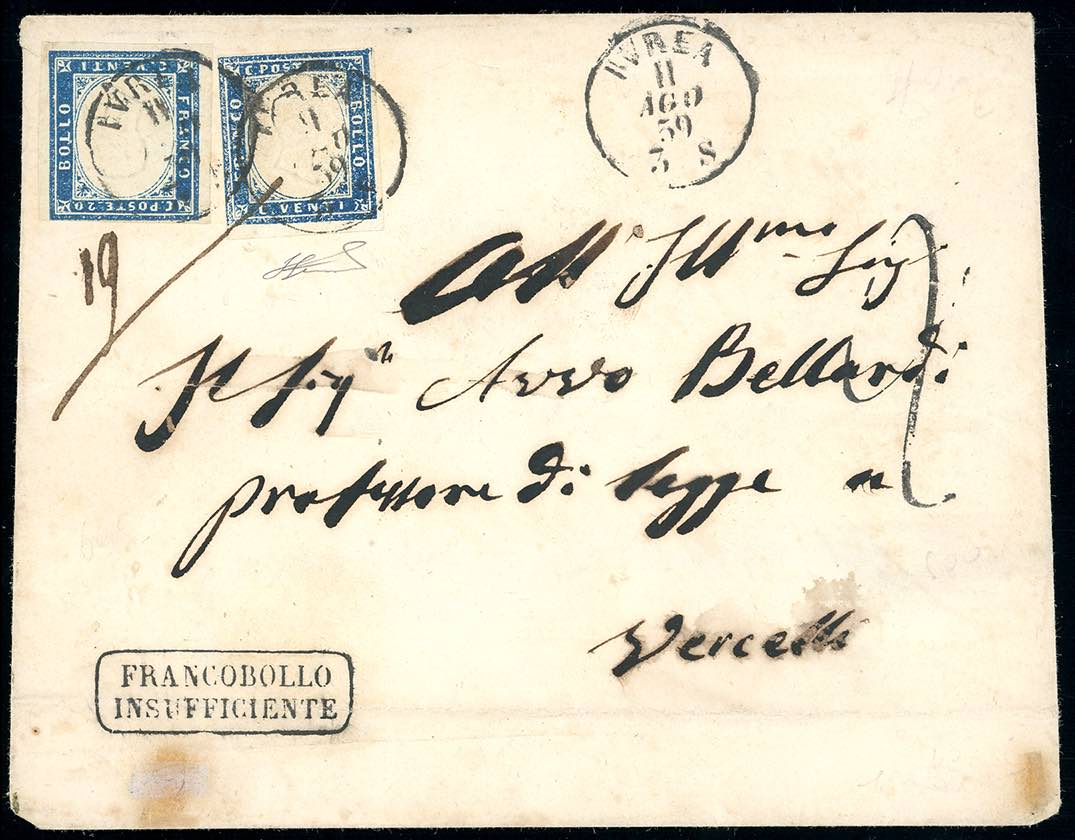 C. VENTI
BOLLO
FRANCO
C. POSTE 20
IVREA
11
C. POSTE
BOLLO
C. VENTI
IVREA
11
59
IVREA
11
AGO
59
3 S
19
All Ill.mo Sig
Il Sig.r Avvo Bellardi
professore di legge a
Vercelli
FRANCOBOLLO
INSUFFICIENTE